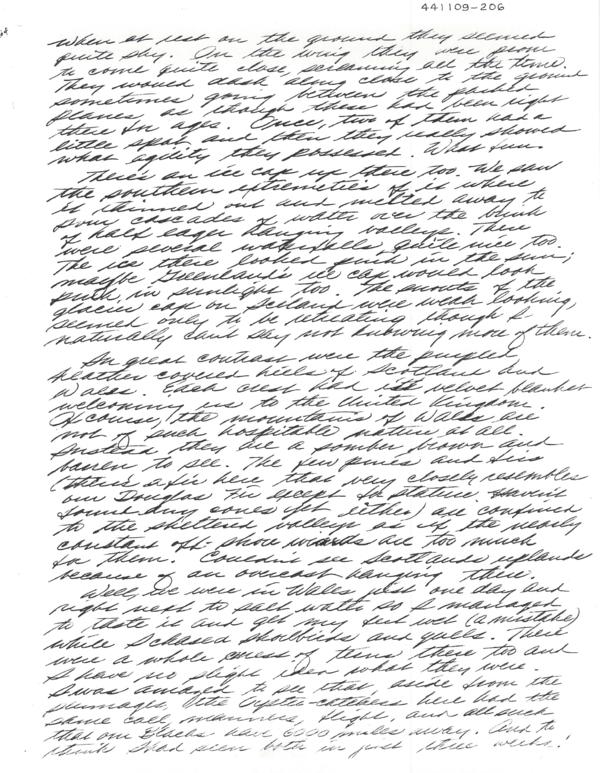 441109-206
When at rest on the ground they seemed
quite shy. On the wing they were prone
to come quite close, screaming all the time.
They would dash along close to the ground
sometimes going between the parked
planes, as though these had been right
there for ages. Once, two of them had a
little spat, and then they really showed
what agility they possessed. What fun.
There's an ice cap up there too. We saw
the southern extremeties of it where
it thinned out and melted away to
pour cascades of water over the brink
of half eager hanging valleys. There
were several waterfalls, quite nice too.
The ice there looked pink in the sun;
maybe Greenland's ice cap would look
pink, in sunlight too. The snouts of the
glacier cap on Iceland were weak looking,
seemed only to be retreating though I
naturally can't say not knowing more of them.
In great contrast were the purpled
heather covered hills of Scotland and
Wales. Each crest had its velvet blanket
welcoming us to the United Kingdom.
Of course, the mountains of Wales are
not of such hospitable nature at all.
Instead they are a somber brown and
barren to see. The few pines and firs
(there's a fir here that very closely resembles
our Douglas Fir except for stature. Haven't
found any cones yet either) are confined
to the sheltered valleys as if the nearly
constant off-shore winds are too much
for them. Couldn't see Scotland's uplands
because of an overcast hanging there.
Well, we were in Wales just one day and
right next to salt water so I managed
to taste it and get my feet wet (a mistake)
while I chased shorebirds and gulls. There
were a whole mess of terns there too and
I have no slight idea what they were.
I was amazed to see that, aside from the
plumages, the Oyster-catchers here had the
same call, manners, flight, and all such
that our Blacks have, 6000 miles away. And to
think I had seen both in just three weeks!